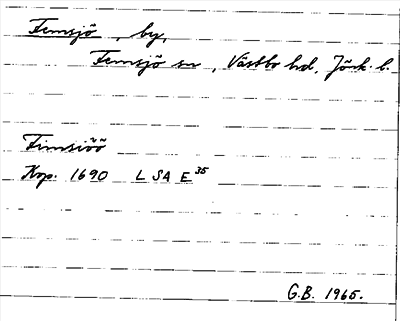 Femsjö, by,
Femsjö sn, Västbo hd, Jönk. l.
Fimsiöö
Kop. 1690 LSA E 35
G.B. 1965.